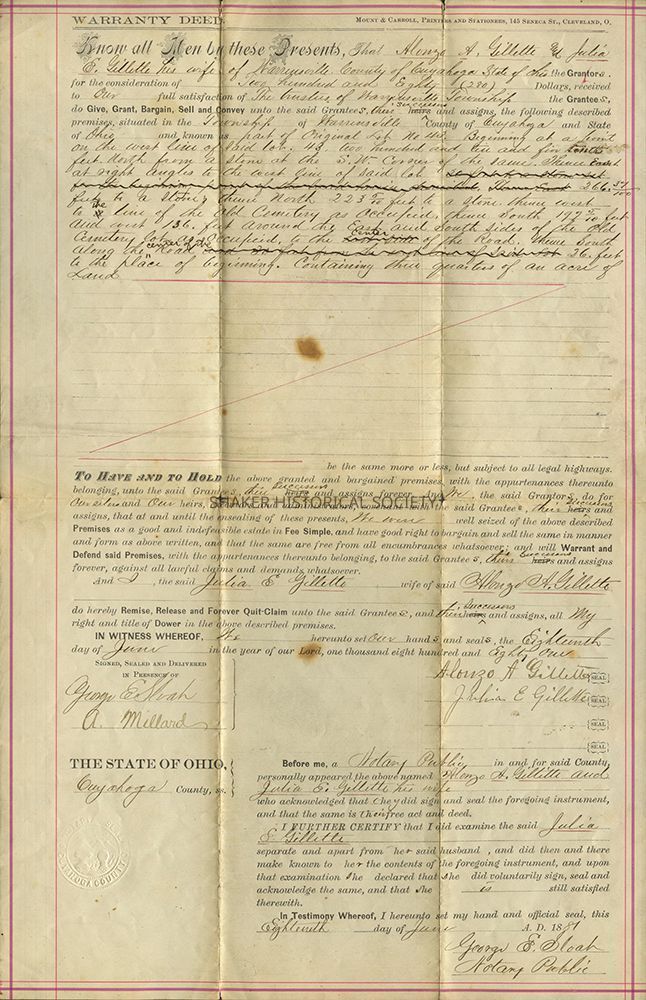 WARRANTY DEED.
MOUNT & CARROLL, PRINTERS AND STATIONERS, 145 SENECA ST., CLEVELAND, O.
Know all Men by these Presents, That Alonzo A. Gillette and Julia
E. Gillette his wife of Warrensville County of Cuyahoga State of Ohio the Grantors.
for the consideration of Two Hundred and Eighty (280) Dollars, received
to Our full satisfaction of The Trustees of Warrensville Township the Grantees,
do Give, Grant, Bargain, Sell and Convey unto the said Grantees, their successors heirs and assigns, the following described
premises, situated in the Township of Warrensville County of Cuyahoga and State
of Ohio and known as part of Original Lot No 43. Beginning at a point
on the west line of said lot 43 two hundred and ten and
feet North from a stone at the S. W. Corner of the same. Thence East
at right angles to the west line of said lot 266.
feet to a stone; thence North 223 feet to a stone, thence west
to the line of the Old Cemetery as occupied, thence South 192 feet
and west 136. feet around the East and South sides of the Old
Cemetery as occupied, to the center of the Road. thence South
along the center of the Road 36. feet
to the place of beginning. Containing three quarters of an acre of
Land
be the same more or less, but subject to all legal highways.
TO HAVE AND TO HOLD the above granted and bargained premises, with the appurtenances thereunto
belonging, unto the said Grantees, their Successors heirs and assigns forever. And We, the said Grantors, do for
Ourselves and Our heirs, said Grantees, their Successors heirs and
SHAKER HISTORICAL SOCIETY
assigns, that at and until the ensealing of these presents, We were well seized of the above described
Premises as a good and indefeasible estate in Fee Simple, and have good right to bargain and sell the same in manner
and form as above written, and that the same are free from all encumbrances whatsoever; and will Warrant and
Defend said Premises, with the appurtenances thereunto belonging, to the said Grantees, their Successors heirs and assigns
forever, against all lawful claims and demands whatsoever.
And I, the said Julia E Gillette wife of said Alonzo A. Gillette
do hereby Remise, Release and Forever Quit-Claim unto the said Grantees, and their Successors heirs and assigns, all My
right and title of Dower in the above described premises.
IN WITNESS WHEREOF, We hereunto set Our hands and seals, the Eighteenth
day of June in the year of our Lord, one thousand eight hundred and Eighty One
SIGNED, SEALED AND DELIVERED
IN PRESENCE OF
Alonzo A Gillette SEAL
George E Sloah
Julia E Gillette SEAL
A. Millard
SEAL
SEAL
THE STATE OF OHIO,
Cuyahoga County, ss.
Before me, a Notary Public in and for said County,
personally appeared the above named Alonzo A. Gillette and
Julia E. Gillette his wife
who acknowledged that they did sign and seal the foregoing instrument,
and that the same is their free act and deed.
I FURTHER CERTIFY that I did examine the said Julia
E Gillette
separate and apart from her said husband, and did then and there
make known to her the contents of the foregoing instrument, and upon
that examination she declared that she did voluntarily sign, seal and
acknowledge the same, and that she is still satisfied
therewith.
In Testimony Whereof, I hereunto set my hand and official seal, this
Eighteenth day of June A. D. 1881
George E. Sloah
Notary Public